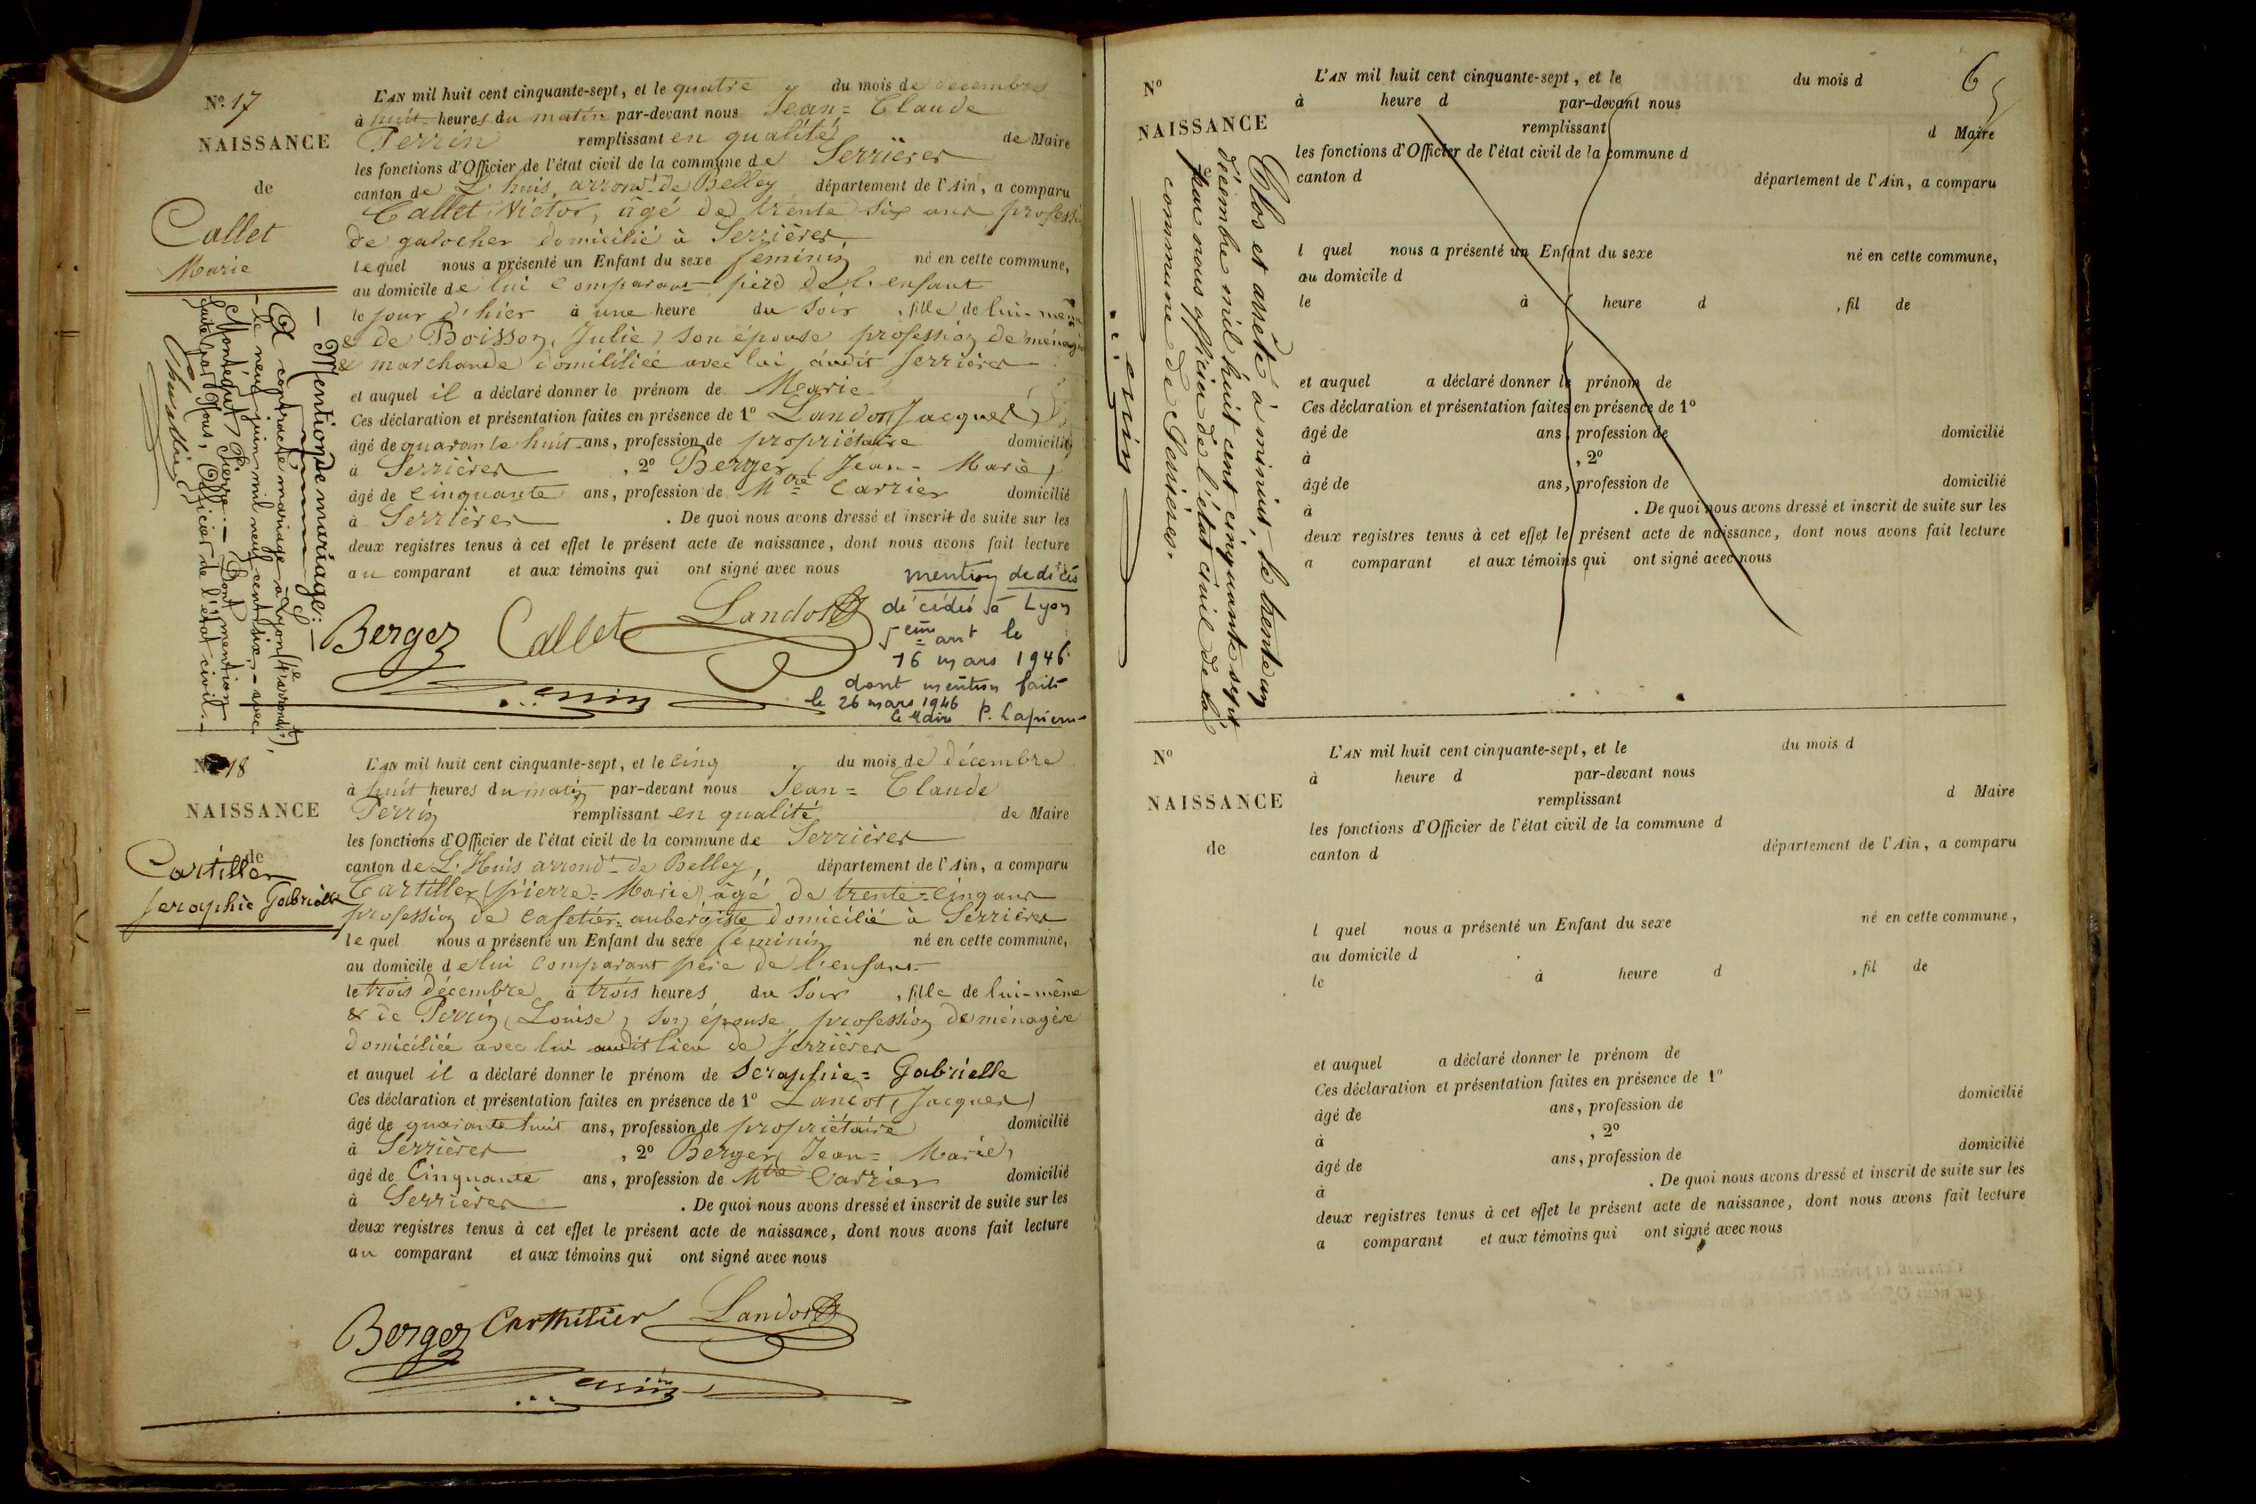 No. 17
NAISSANCE
de
Callet
Marie
L'AN mil huit cent cinquante-sept, et le quatre du mois de decembre
à huit heures du matin par-devant nous Jean = Claude
Perrin remplissant en qualité de Maire
les fonctions d'Officier de l'état civil de la commune de Serrières
canton de L'huis, arrondt de Belley département de l'Ain, a comparu
Callet Victor, âgé de trente six ans professi
de galocher domicilié à Serrières,
lequel nous a présenté un Enfant du sexe feminin né en cette commune,
au domicile de lui comparant père de l'enfant
le jour d'hier à une heure du soir, fille de lui-même
& de Boisson, Julie, son épouse profession de ménagère
& marchande domiliciée avec lui audit Serrières
et auquel il a déclaré donner le prénom de Marie
Ces déclaration et présentation faites en présence de 1º Landot (Jacques)
âgé de quarante huit ans, profession de propriétaire domicilié
à Serrières, 2º Berger (Jean = Marie)
âgé de Cinquante ans, profession de Mtre Carrier domicilié
à Serrières. De quoi nous avons dressé et inscrit de suite sur les
deux registres tenus à cet effet le présent acte de naissance, dont nous avons fait lecture
au comparant et aux témoins qui ont signé avec nous
Berger Callet Landot
Perrin
mention de décès
décédée à Lyon
5ème arrt le
16 mars 1946
dont mention faite
le 26 mars 1946
le Maire P. Lapierre
— Mention de mariage: —
A contracté mariage à Lyon (4e arrondt),
le neuf juin mil neuf cent six, - avec
Montégut, Pierre. — Dont mention
faite par Nous, Officier de l'état civil. —
No 18
NAISSANCE
de
Cartiller
Seraphie Gabrielle
L'AN mil huit cent cinquante-sept, et le cinq du mois de décembre
à huit heures du matin par-devant nous Jean = Claude
Perrin remplissant en qualité de Maire
les fonctions d'Officier de l'état civil de la commune de Serrières
canton de L'Huis arrondt de Belley, département de l'Ain, a comparu
Cartiller (pierre = Marie) âgé de trente = cinq ans
profession de cafetier = aubergiste domicilié à Serrières
lequel nous a présenté un Enfant du sexe feminin né en cette commune,
au domicile de lui comparant père de l'enfant
le trois décembre à trois heures du soir, fille de lui-même
& de Perrin (Louise) son épouse profession de ménagère
domiciliée avec lui audit lieu de Serrières
et auquel il a déclaré donner le prénom de Seraphie = Gabrielle
Ces déclaration et présentation faites en présence de 1º Landot (Jacques)
âgé de quarante huit ans, profession de propriétaire domicilié
à Serrières, 2º Berger (Jean = Marie)
âgé de Cinquante ans, profession de Mtre Carrier domicilié
à Serrières. De quoi nous avons dressé et inscrit de suite sur les
deux registres tenus à cet effet le présent acte de naissance, dont nous avons fait lecture
au comparant et aux témoins qui ont signé avec nous
Berger Carthilier Landot
Perrin
6
No
NAISSANCE
L'AN mil huit cent cinquante-sept, et le du mois d
à heure d par-devant nous
remplissant d Maire
les fonctions d'Officier de l'état civil de la commune d
canton d département de l'Ain, a comparu
l quel nous a présenté un Enfant du sexe né en cette commune,
au domicile d
le à heure d, fil de
et auquel a déclaré donner le prénom de
Ces déclaration et présentation faites en présence de 1º
âgé de ans, profession de domicilié
à, 2º
âgé de ans, profession de domicilié
à. De quoi nous avons dressé et inscrit de suite sur les
deux registres tenus à cet effet le présent acte de naissance, dont nous avons fait lecture
a comparant et aux témoins qui ont signé avec nous
Clos et arrêté à minuit, le trente un
décembre mil huit cent cinquante sept
par nous officier de l'état civil de la
commune de Serrières.
Perrin
No
NAISSANCE
de
L'AN mil huit cent cinquante-sept, et le du mois d
à heure d par-devant nous
remplissant d Maire
les fonctions d'Officier de l'état civil de la commune d
canton d département de l'Ain, a comparu
l quel nous a présenté un Enfant du sexe né en cette commune,
au domicile d
le à heure d, fil de
et auquel a déclaré donner le prénom de
Ces déclaration et présentation faites en présence de 1º
âgé de ans, profession de domicilié
à, 2º
âgé de ans, profession de domicilié
à. De quoi nous avons dressé et inscrit de suite sur les
deux registres tenus à cet effet le présent acte de naissance, dont nous avons fait lecture
a comparant et aux témoins qui ont signé avec nous